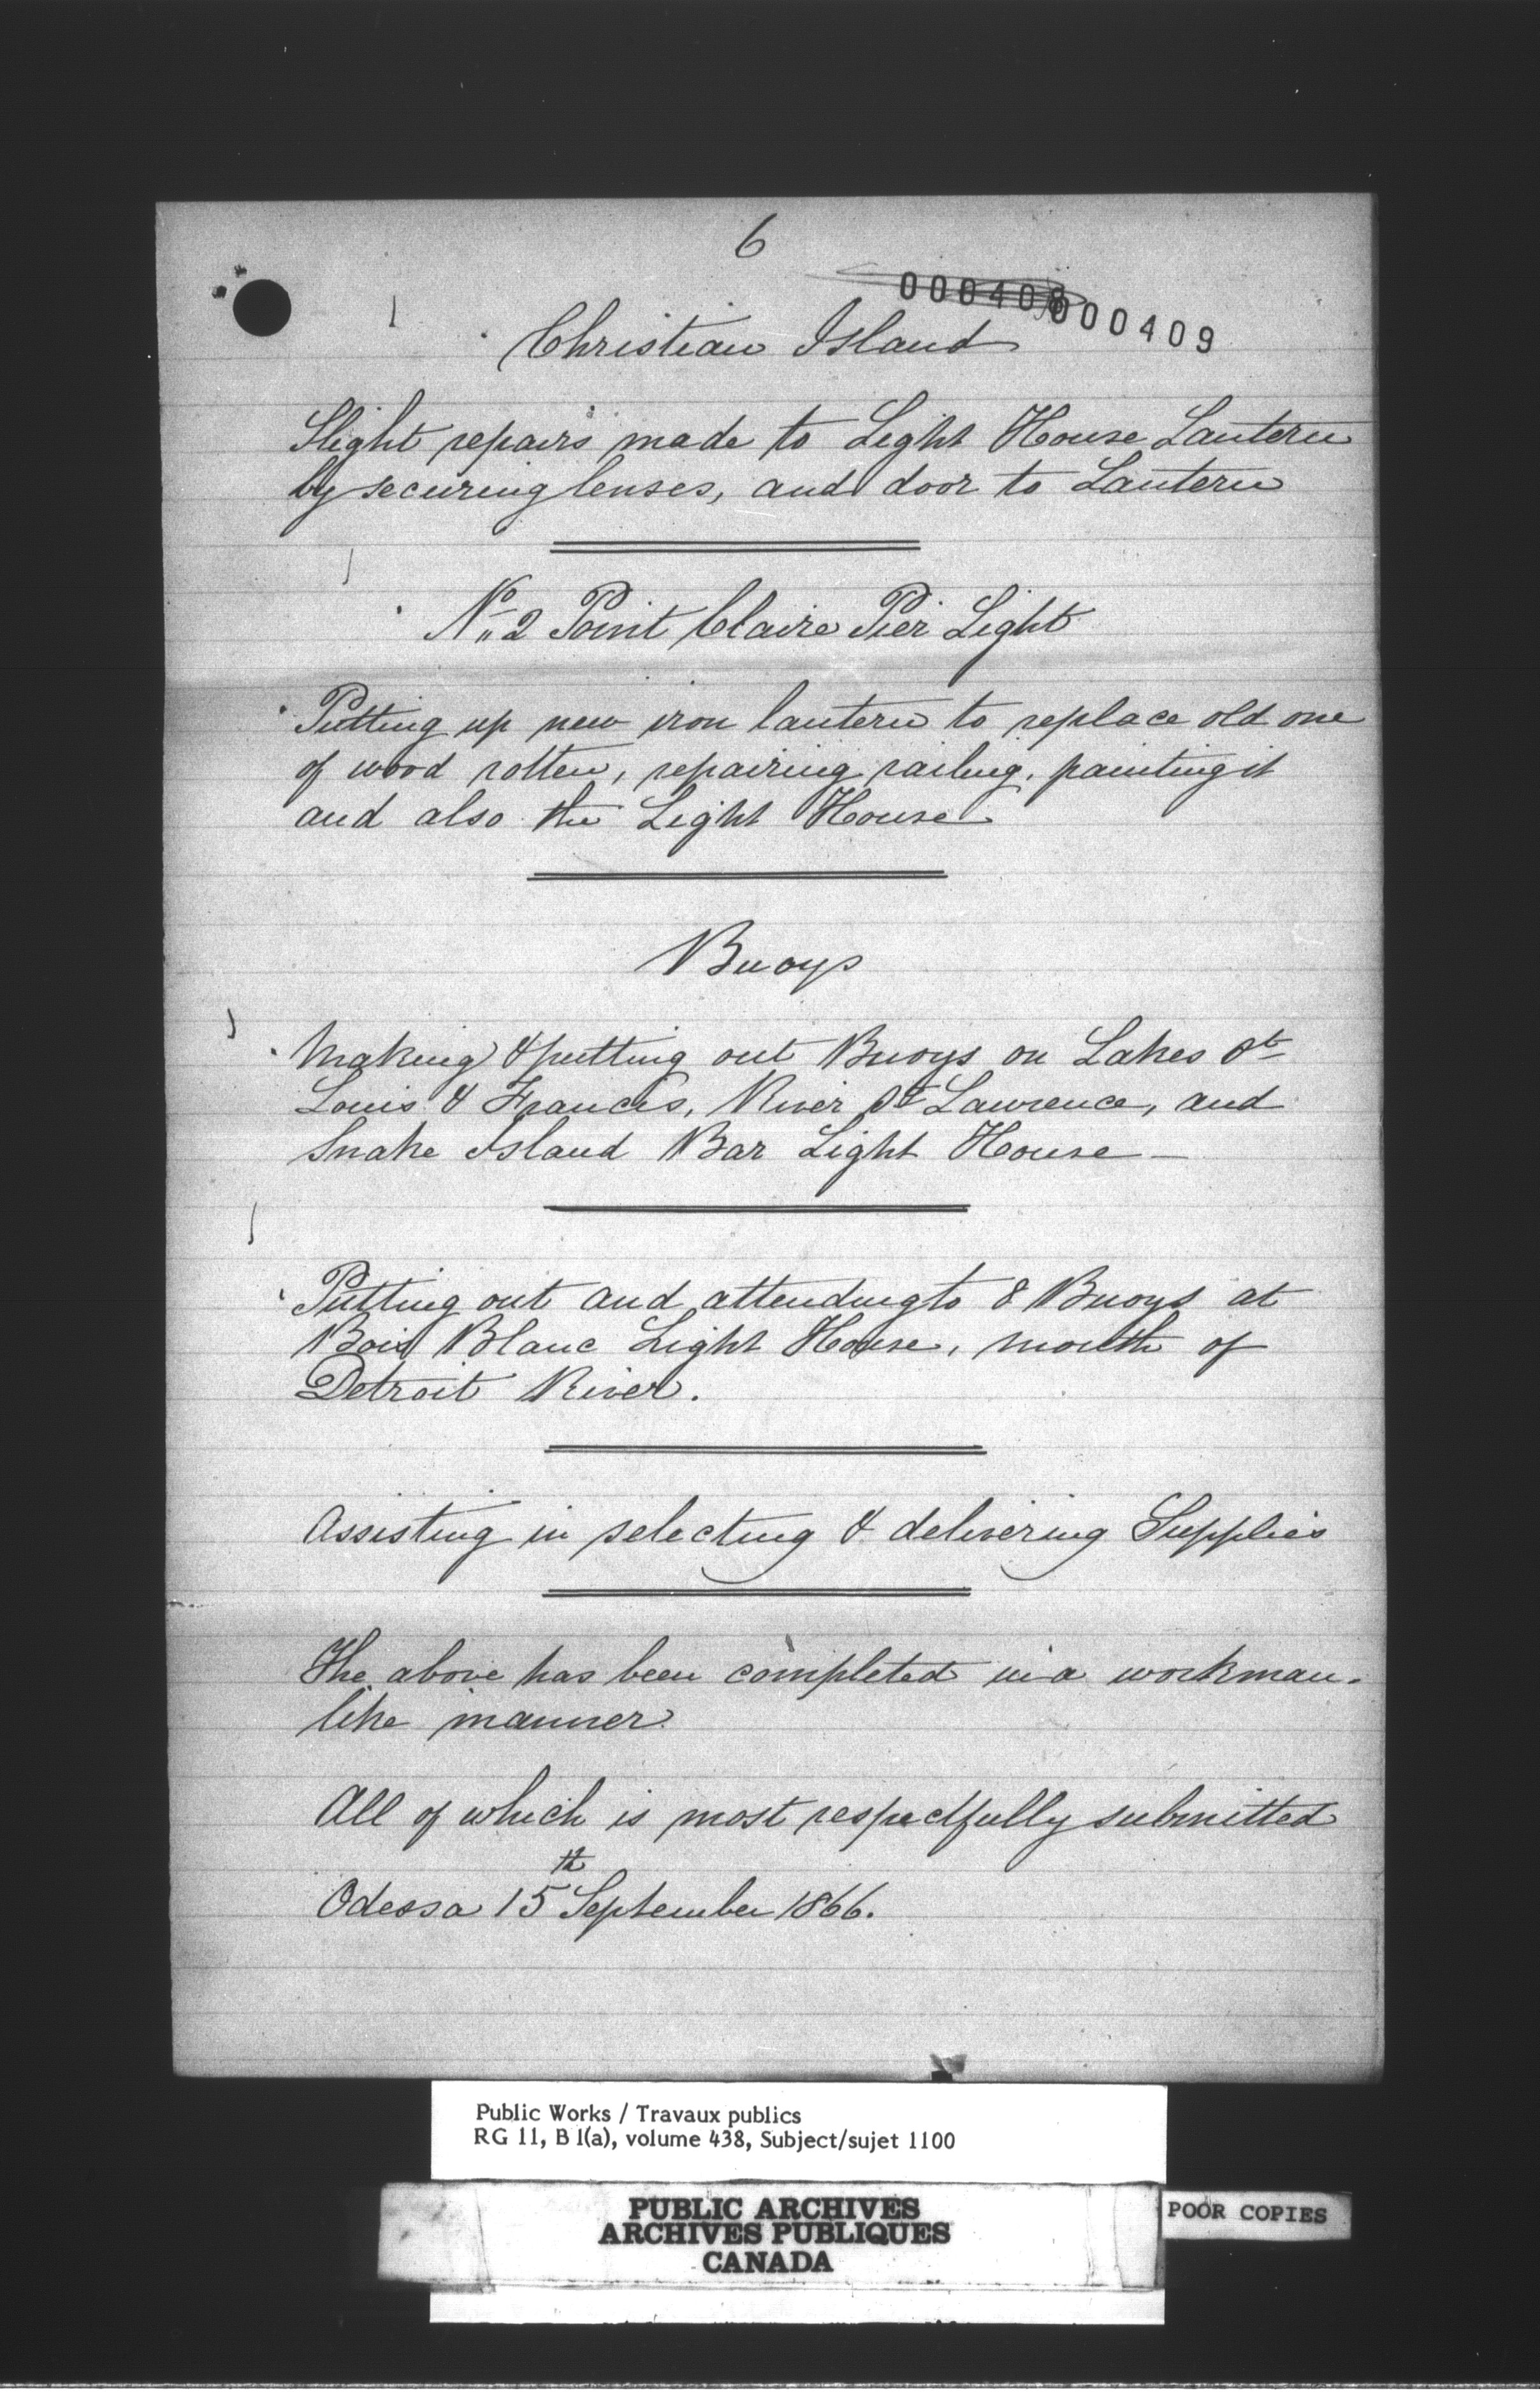 6
000408
000409
Christian Island
Slight repairs made to Light House Lantern
by securing lenses, and door to Lantern
No 2 Point Claire Pier Light
Putting up new iron lantern to replace old one
of wood rotten, repairing railing, painting it
and also the Light House
Buoys
Making & putting out Buoys on Lakes St
Louis & Francis, River St Lawrence, and
Snake Island Bar Light House —
Putting out and attending to 8 Buoys at
Bois Blanc Light House, mouth of
Detroit River.
Assisting in selecting & delivering Supplies
The above has been completed in a workman-
like manner.
All of which is most respectfully submitted
Odessa 15th September 1866.
Public Works / Travaux publics
RG 11, B 1(a), volume 438, Subject/sujet 1100
PUBLIC ARCHIVES
ARCHIVES PUBLIQUES
CANADA
POOR COPIES